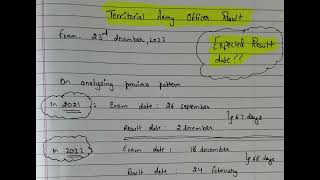 Territorial Army Officer Result
Exam - 23rd december, 2023
Expected Result
date??
On analysing previous pattern
In 2021 : Exam date: 26 september
67 days
Result date: 2 december
In 2022 Exam date: 18 december
68 days
Result date: 24 february